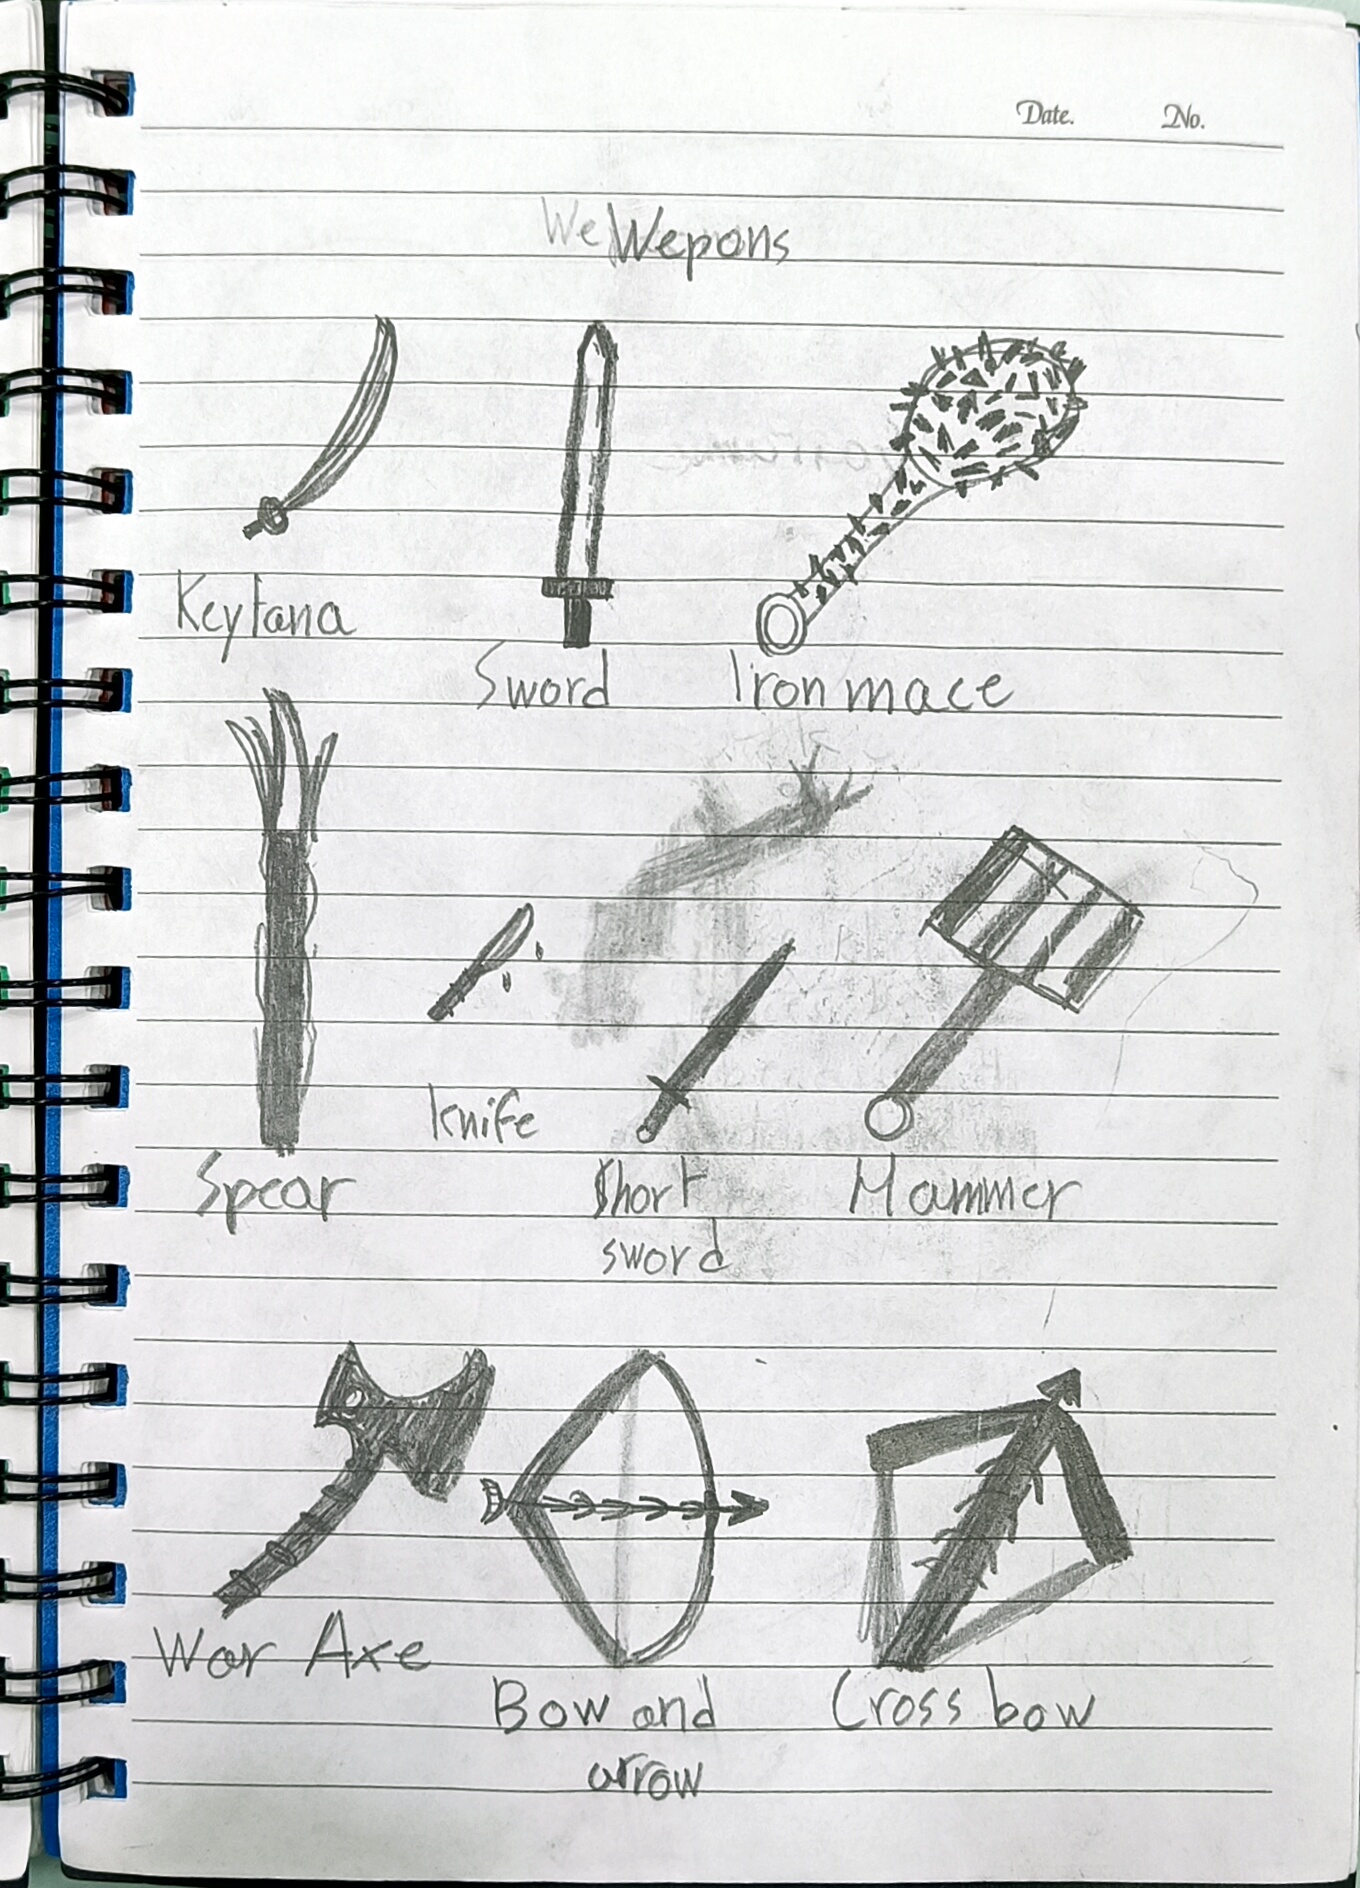 Date. No.
We Wepons
Keytana
Sword
Iron mace
Spear
Knife
Short
sword
Hammer
War Axe
Bow and
arrow
Cross bow